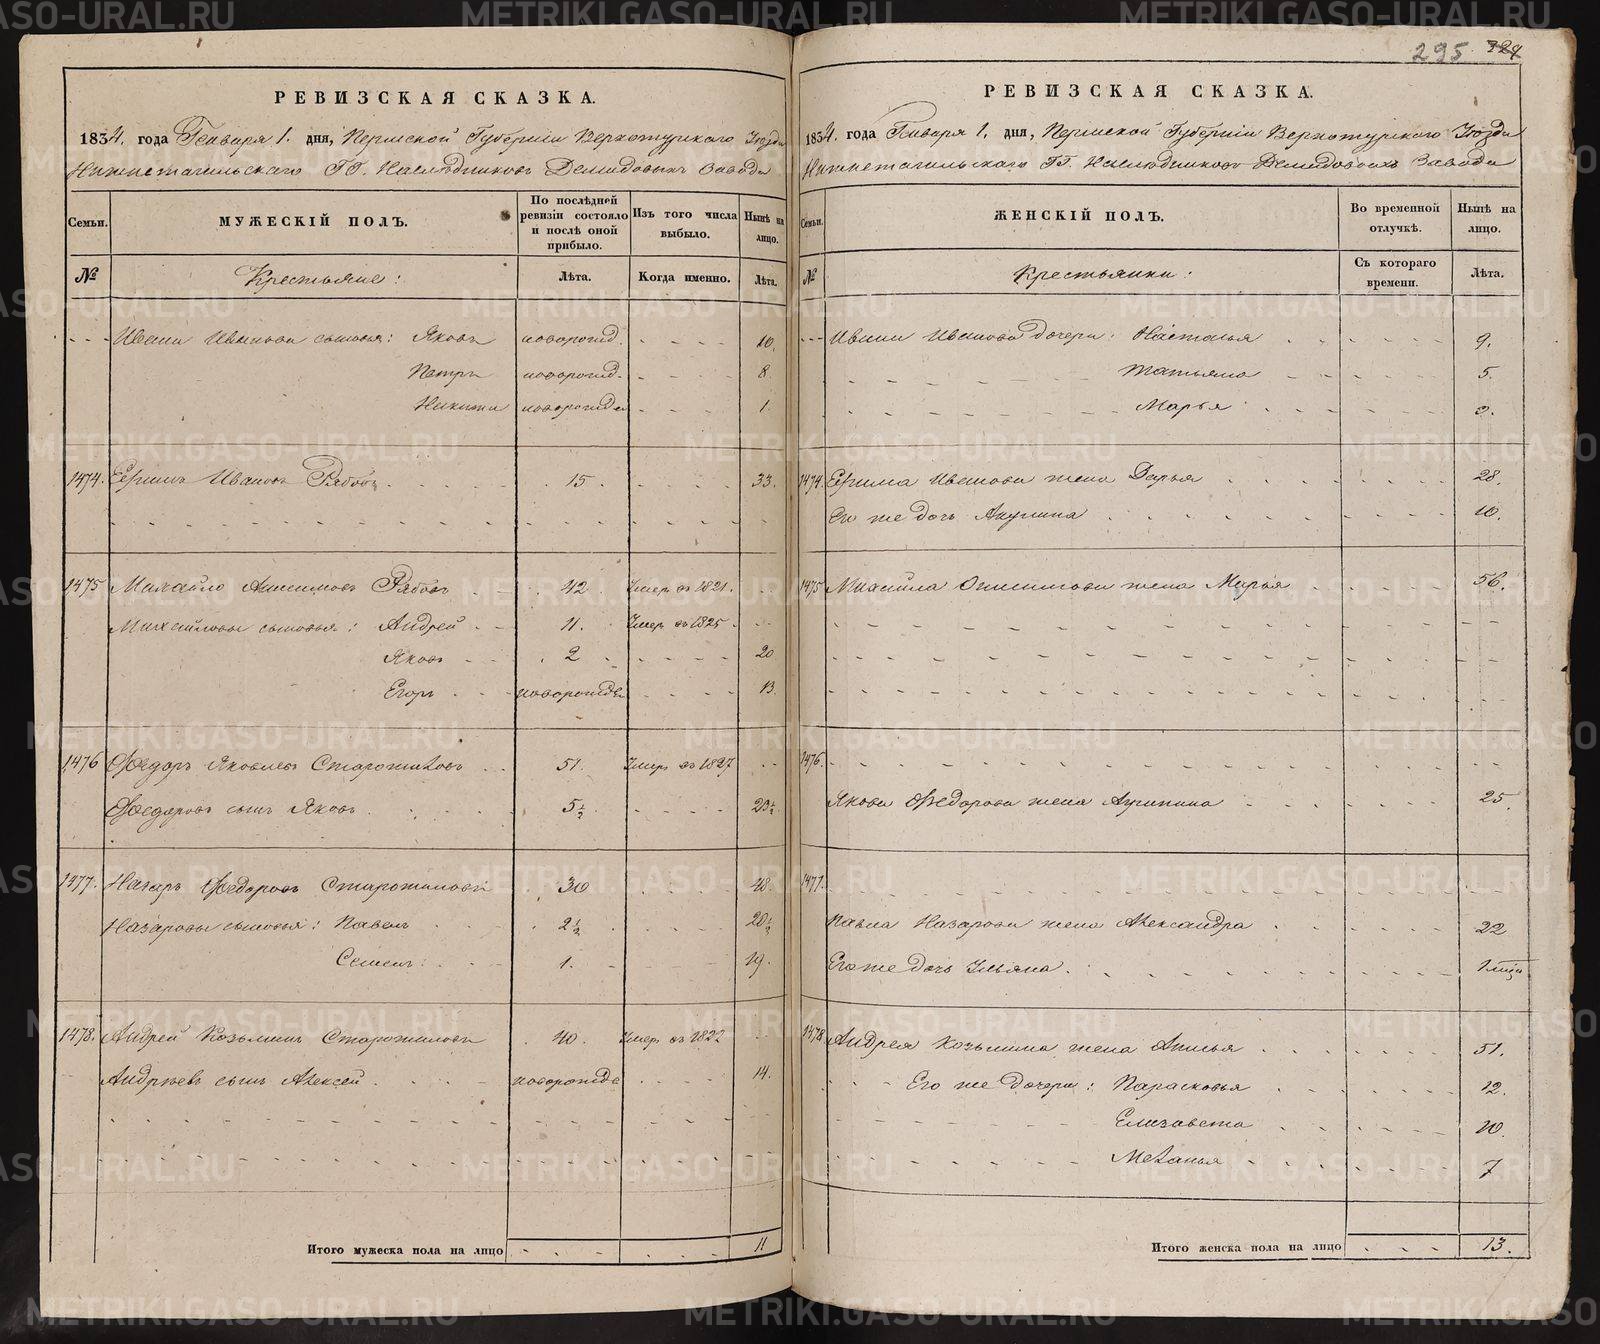 295 324
РЕВИЗСКАЯ СКАЗКА.
1834. года Генваря 1. дня, Пермской Губерніи Верхотурского Уѣзда
Нижнетагильского ГГ. Наслѣдниковъ Демидовыхъ Завода
Семьи.
МУЖЕСКІЙ ПОЛЪ.
По послѣдней ревизіи состояло и послѣ оной прибыло.
Изъ того числа выбыло.
Нынѣ на лицо.
№
Крестьяне:
Лѣта.
Когда именно.
Лѣта.
Ивана Иванова сыновья: Яковъ новорожд. 10.
Петръ новорожд. 8
Никита новорожден 1.
1474. Ефимъ Ивановъ Рябовъ 15. 33.
1475 Михайло Анисимовъ Рябовъ 42 Умеръ въ 1821.
Михайловы сыновья: Андрей 11. Умер въ 1825
Яковъ 2 20
Егоръ новорожден 13.
1476 Ѳедоръ Яковлевъ Старожиловъ 51. Умеръ въ 1827
Ѳедоровъ сынъ Яковъ 5½ 20½
1477. Назаръ Ѳедоровъ Старожиловъ 30 48.
Назаровы сыновья: Павелъ 2½ 20½
Семенъ: 1. 19.
1478. Андрей Козьминъ Старожиловъ 40. Умеръ въ 1822
Андрѣевъ сынъ Алексей новорожде 14.
Итого мужеска пола на лицо 11
РЕВИЗСКАЯ СКАЗКА.
1834. года Генваря 1. дня, Пермской Губерніи Верхотурского Уѣзда
Нижнетагильского ГГ. Наслѣдниковъ Демидовыхъ Завода
Семьи.
ЖЕНСКІЙ ПОЛЪ.
Во временной отлучкѣ.
Нынѣ на лицо.
№
Крестьянки:
Съ котораго времени.
Лѣта.
Ивана Иванова дочери: Настасья 9.
Татьяна 5.
Марья
1474. Ефима Иванова жена Дарья 28.
Его же дочь Акулина 10.
1475 Михаила Онисимова жена Марья 56.
1476.
Якова Ѳедорова жена Агрипина 25.
1477.
Павла Назарова жена Александра 22
Его же дочь Ульяна.
1478 Андрея Козьмина жена Анисья 51.
Его же дочери: Парасковья 12.
Елизавета 10.
Меланья 7
Итого женска пола на лицо 13.
METRIKI.GASO-URAL.RU